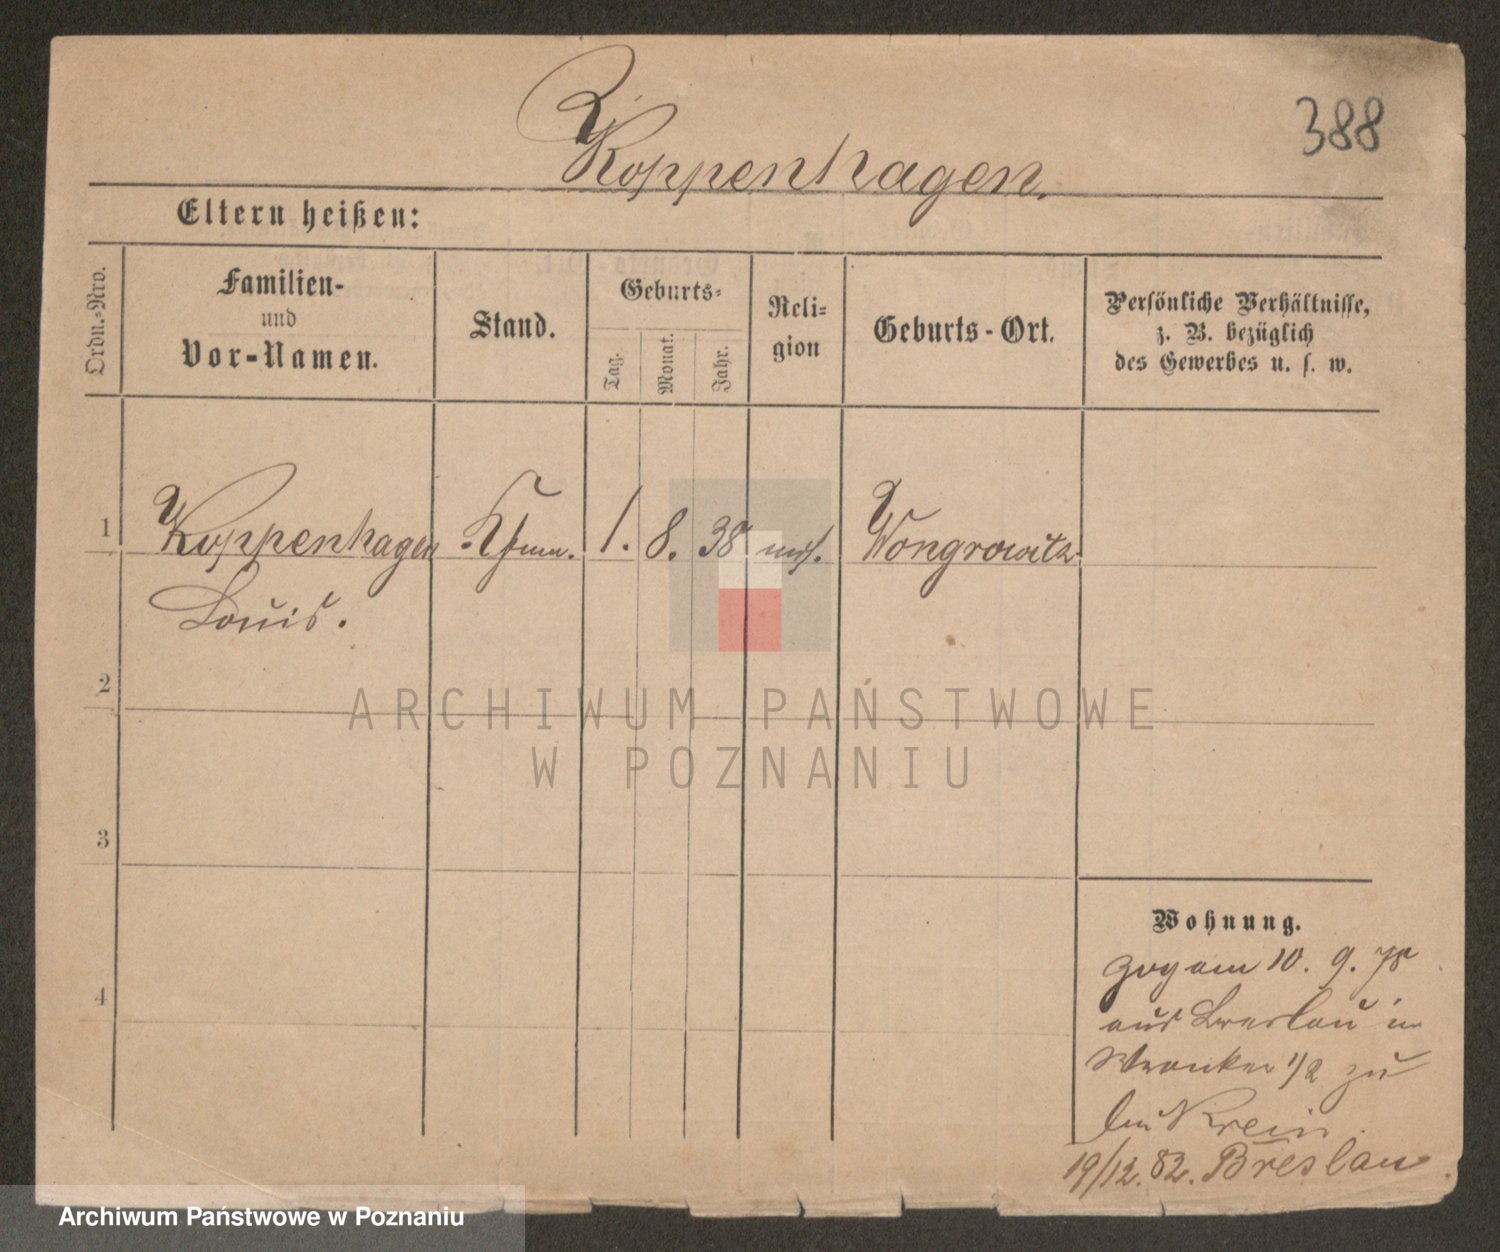 388
Koppenhagen.
Eltern heißen:
Ordn.-Nro.
Familien-
und
Vor-Namen.
Stand.
Geburts-
Tag.
Monat.
Jahr.
Reli-
gion
Geburts-Ort.
Persönliche Verhältnisse,
z. B. bezüglich
des Gewerbes u. s. w.
1
Koppenhagen
Louis.
1. 8. 38
Wongrowitz
2
3
4
ARCHIWUM PAŃSTWOWE
W POZNANIU
Wohnung.
Zog am 10. 9. 78
aus Breslau in
Wronker 1/2 zu
19/12. 82. Breslau
Archiwum Państwowe w Poznaniu